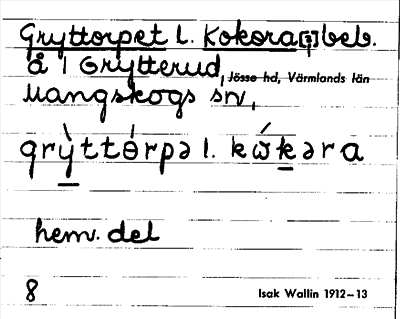 Gryttorpet l. Kokora[†] beb.
å 1 Grytterud, Jösse hd, Värmlands län
Mangskogs sn,
grỳttɵ́rpə l. kώkəra
hem. del
8 Isak Wallin 1912–13